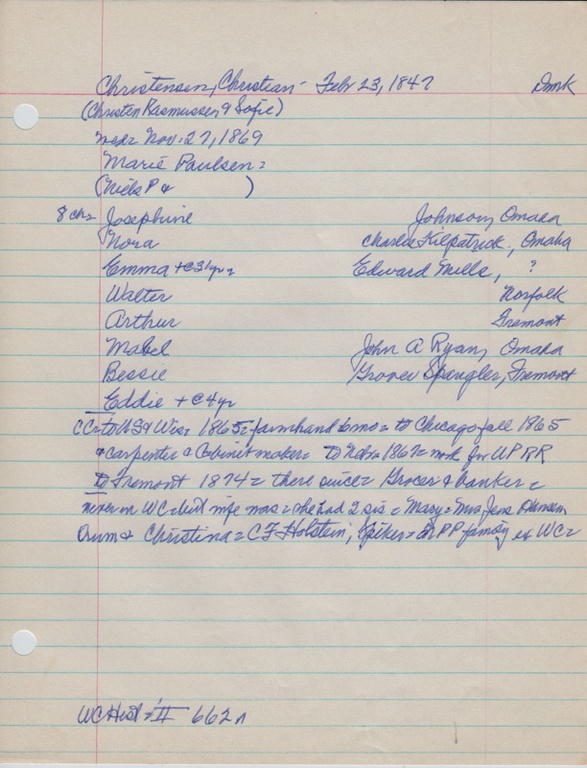 Christensen, Christian - Febr 23, 1847 Dmk
(Christen Rasmussen & Sofie)
wed= Nov. 27, 1869
Marie Paulsen =
(Niels P & )
8 ch= Josephine Johnson, Omaha
Nora Charles Kilpatrick, Omaha
Emma + c 3 1/2 yr = Edward Mills, ?
Walter Norfolk
Arthur Fremont
Mabel John A Ryan, Omaha
Bessie Grover Spangler, Fremont
Eddie + c 4 yr
CC= to US & Wis= 1865= farmhand 6 mo= to Chicago fall 1865
& carpenter & Cabinet maker= to Nebr 1867= work for UP RR
to Fremont 1874= there since= Grocer & banker=
never in WC= but wife was= she had 2 sis= Mary= Mrs Jens
Orum & Christina= C F Holstein; PP family of WC=
WC Hist= II 662 n